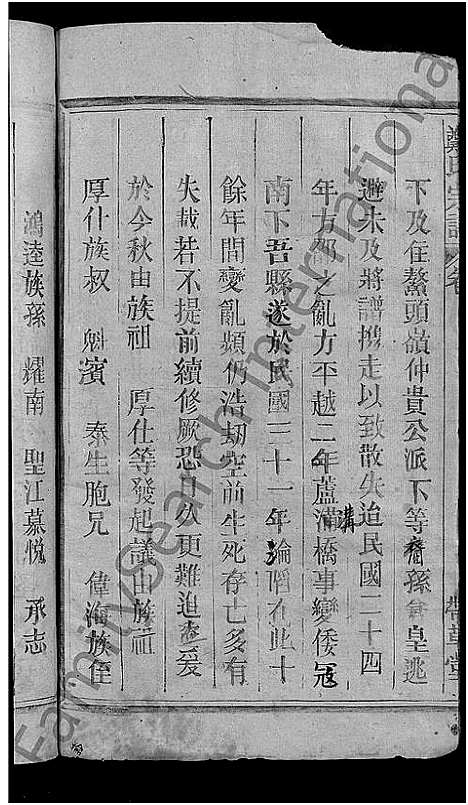 鄭氏宗譜 卷
下及住鰲頭嶺仲貴公派下等裔孫倉皇逃
避未及將譜携走以致散失迨民國二十四
年方邵之亂方平越二年蘆溝橋事變倭寇
南下吾縣遂於民國三十一年淪陷在此十
餘年間變亂頻仍浩劫空前生死存亡多有
失載若不提前續修厥恐日久更難追查爰
於今秋由族祖 厚仕等發起議由族祖
厚什族叔 魁濱 泰生胞兄 偉海族侄
鴻逵族孫 耀南 聖江慕悅 承志
FamilySearch International